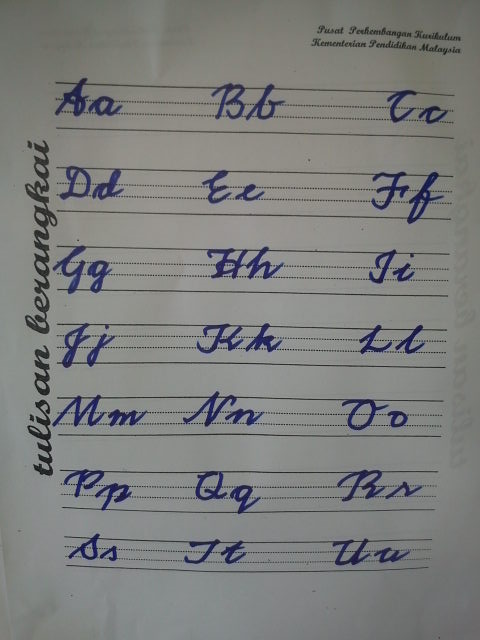 Pusat Perkembangan Kurikulum
Kementerian Pendidikan Malaysia
tulisan berangkai
Aa Bb Cc
Dd Ee Ff
Gg Hh Ii
Jj Kk Ll
Mm Nn Oo
Pp Qq Rr
Ss Tt Uu